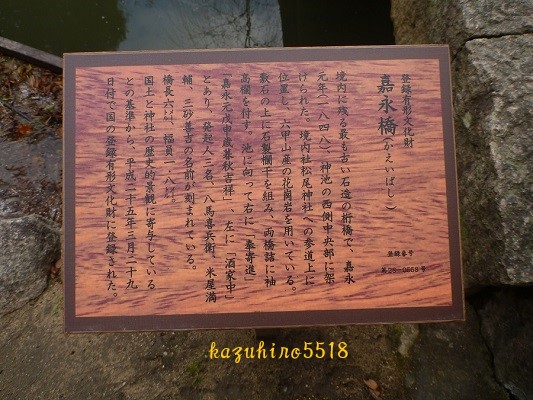 登録有形文化財
嘉永橋(かえいばし)
登録番号
第28-0553号
境内に残る最も古い石造の桁橋で、嘉永
元年(一八四八)、神池の西側中央部に架
けられた。境内社松尾神社への参道上に
位置し、六甲山産の花崗岩を用いている。
敷石の上に石製欄干を組み、両橋詰に袖
高欄を付す。池に向って右に「奉寄進」
「嘉永元戊申歳暮秋吉祥」、左に「酒家中」
とあり、発起人三名、八馬喜兵衛、米屋満
輔、三砂善吉の名前が刻まれている。
橋長六㍍、幅員二・八㍍。
国土と神社の歴史的景観に寄与している
との基準から、平成二十五年三月二十九
日付で国の登録有形文化財に登録された。
kazuhiro5518